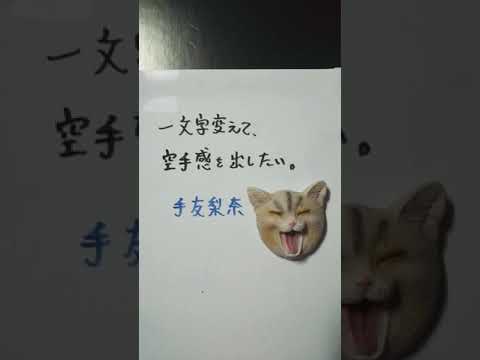 一文字変えて、
空手感を出したい。
手友梨奈